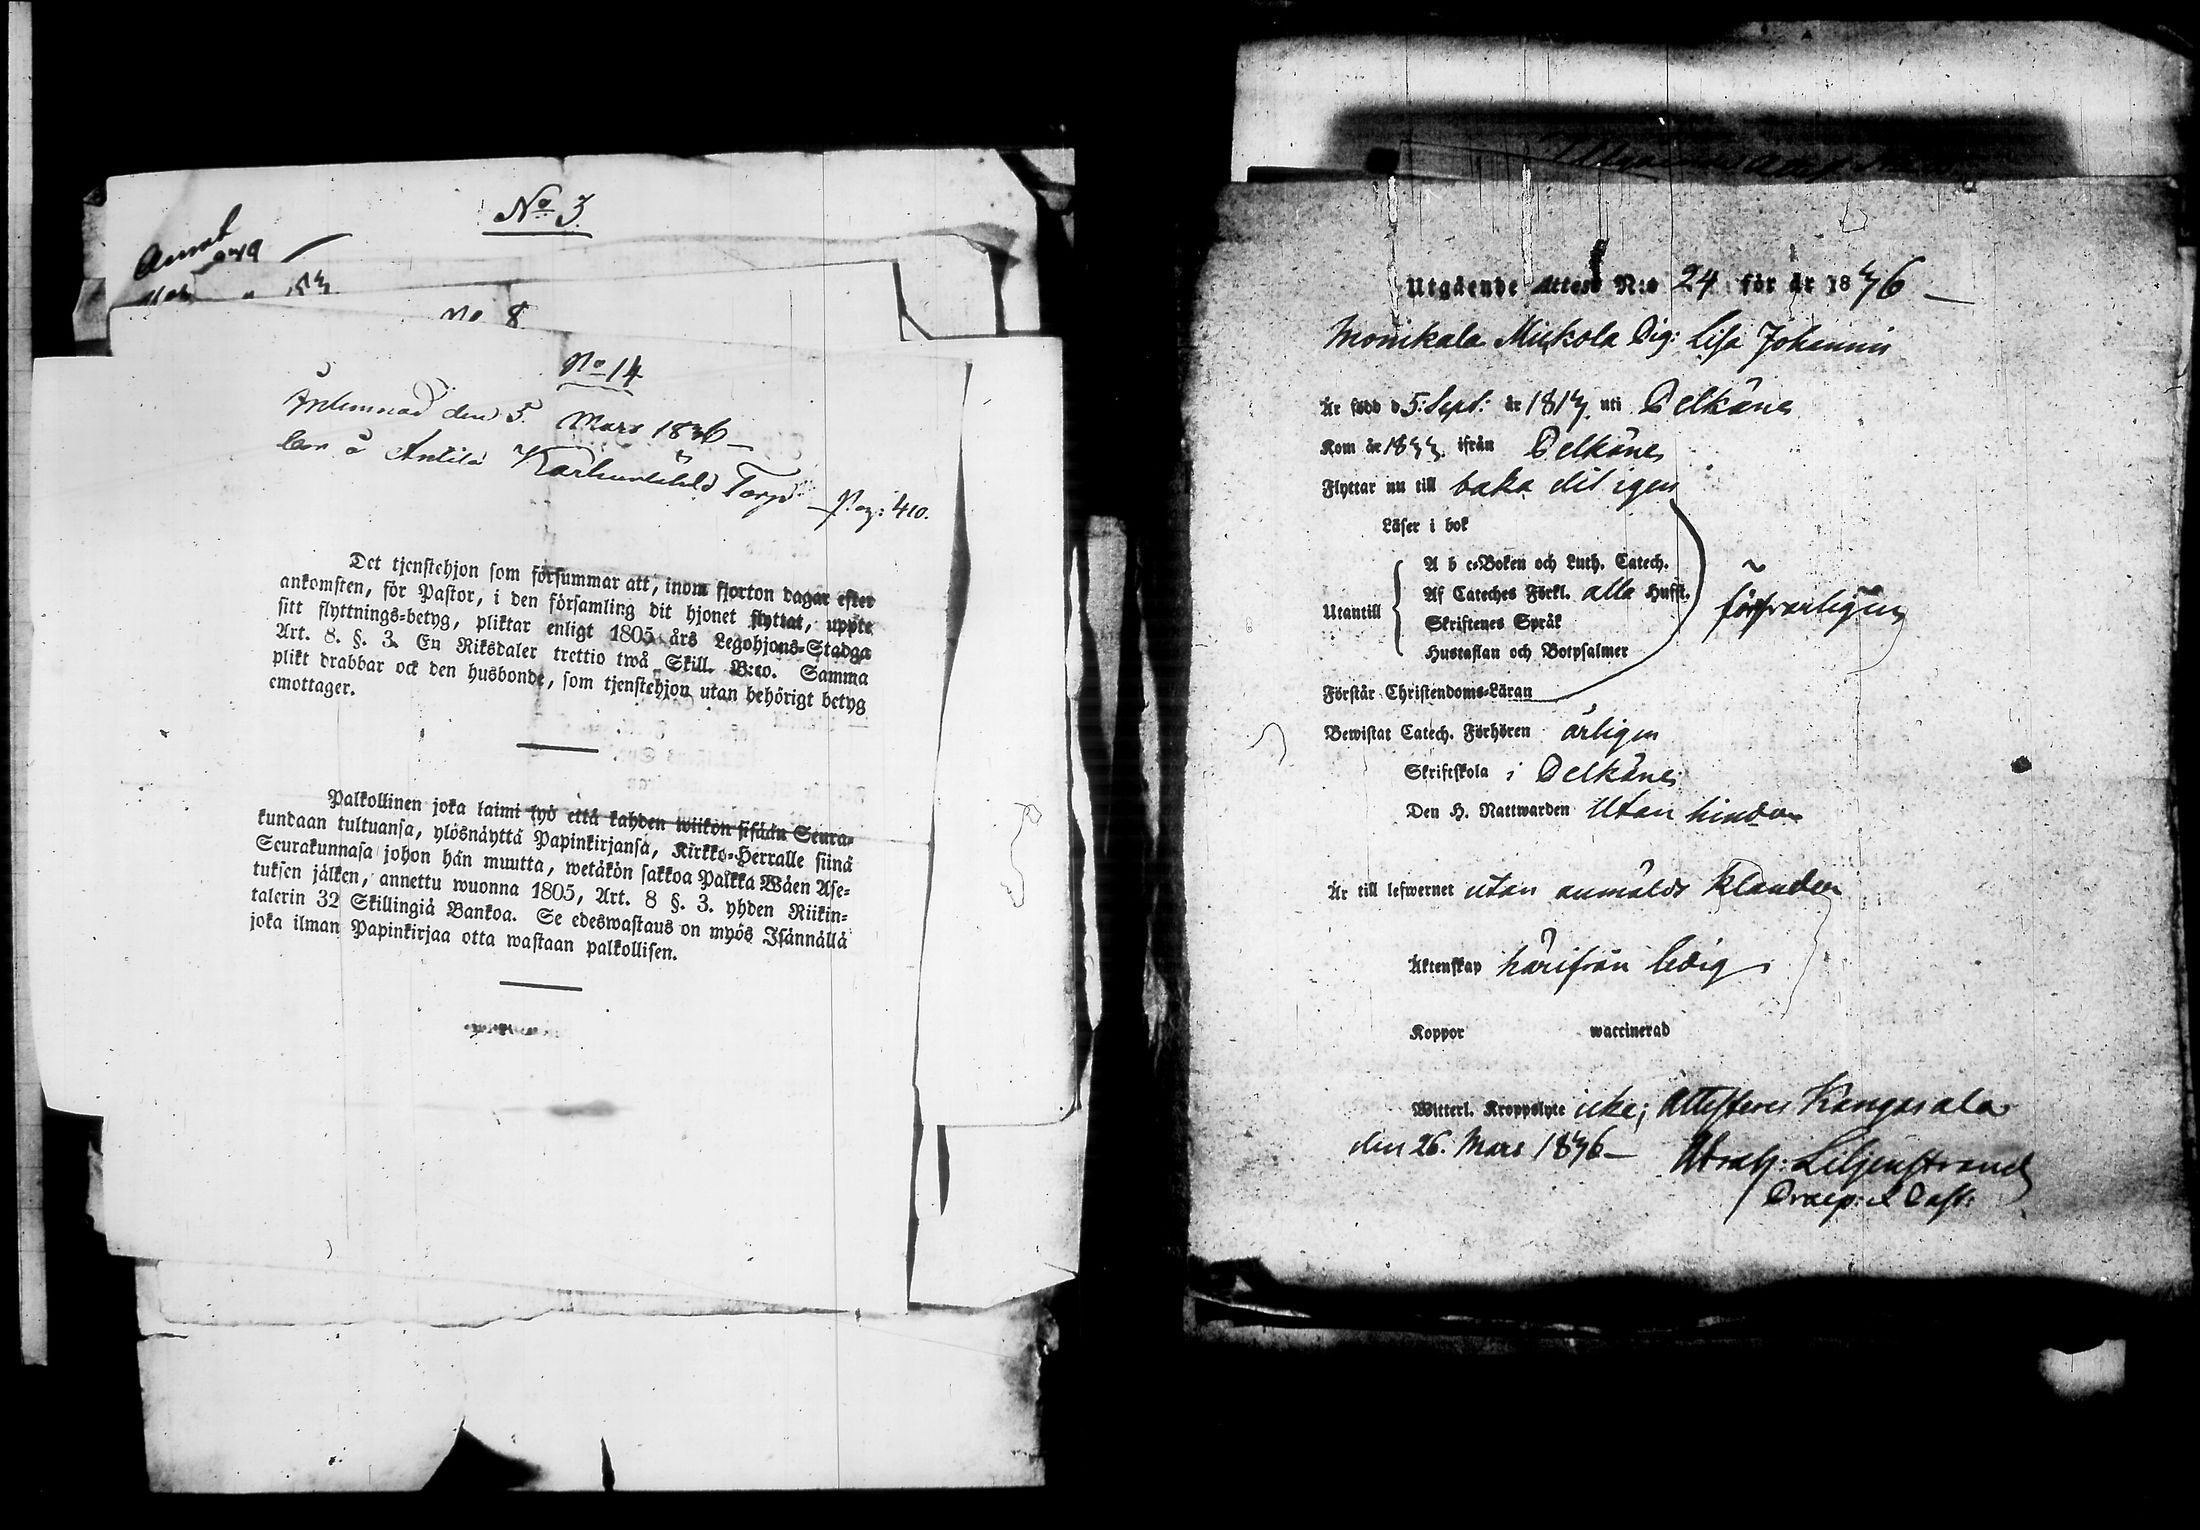 No 3.
Annot
No 8
No 14
Anlemnad den 5. Mars 1836
bor å Anttila Torp Pag: 410.
Det tjenstehjon som försummar att, inom fjorton dagar efter
ankomsten, för Pastor, i den församling dit hjonet flyttat, uppte
sitt flyttnings-betyg, pliktar enligt 1805 års Legohjons-Stadga
Art. 8. §. 3. En Riksdaler trettio twå Skill. B:co. Samma
plikt drabbar ock den husbonde, som tjenstehjon utan behörigt betyg
emottager.
Palkollinen joka laimi lyö että kahden wiikon sisään Seura-
kundaan tultuansa, ylösnäyttä Papinkirjansa, Kirkko-Herralle siinä
Seurakunnasa johon hän muutta, wetäkön sakkoa Palkka Wäen Ase-
tuksen jälken, annettu wuonna 1805, Art. 8 §. 3. yhden Riikin-
talerin 32 Skillingiä Bankoa. Se edeswastaus on myös Isännällä
joka ilman Papinkirjaa otta wastaan palkollisen.
Utgående Attest N:o 24 för år 1836
Monikala Mickola Pig: Lisa Johannis
Är född d 5: Sept: år 1813 uti Pelkäne
Kom år 1833 ifrån Pelkäne
Flyttar nu till baka dit igen
Läser i bok
A b c-Boken och Luth. Catech.
Af Cateches Förkl. alla Hufst.
Utantill
Skriftenes Språk
Hustaflan och Botpsalmer
försvarligen
Förstår Christendoms-Läran
Bewistat Catech. Förhören årligen
Skriftskola i Pelkäne
Den H. Nattwarden Utan hinder
Är till lefwernet utan anmäldt klander
Äktenskap härifrån ledig
Koppor waccinerad
Witterl. Kroppslyte icke; Attesteras Kangasala
den 26. Mars 1836 Abrah: Liljenstrand
Praep: & Past: